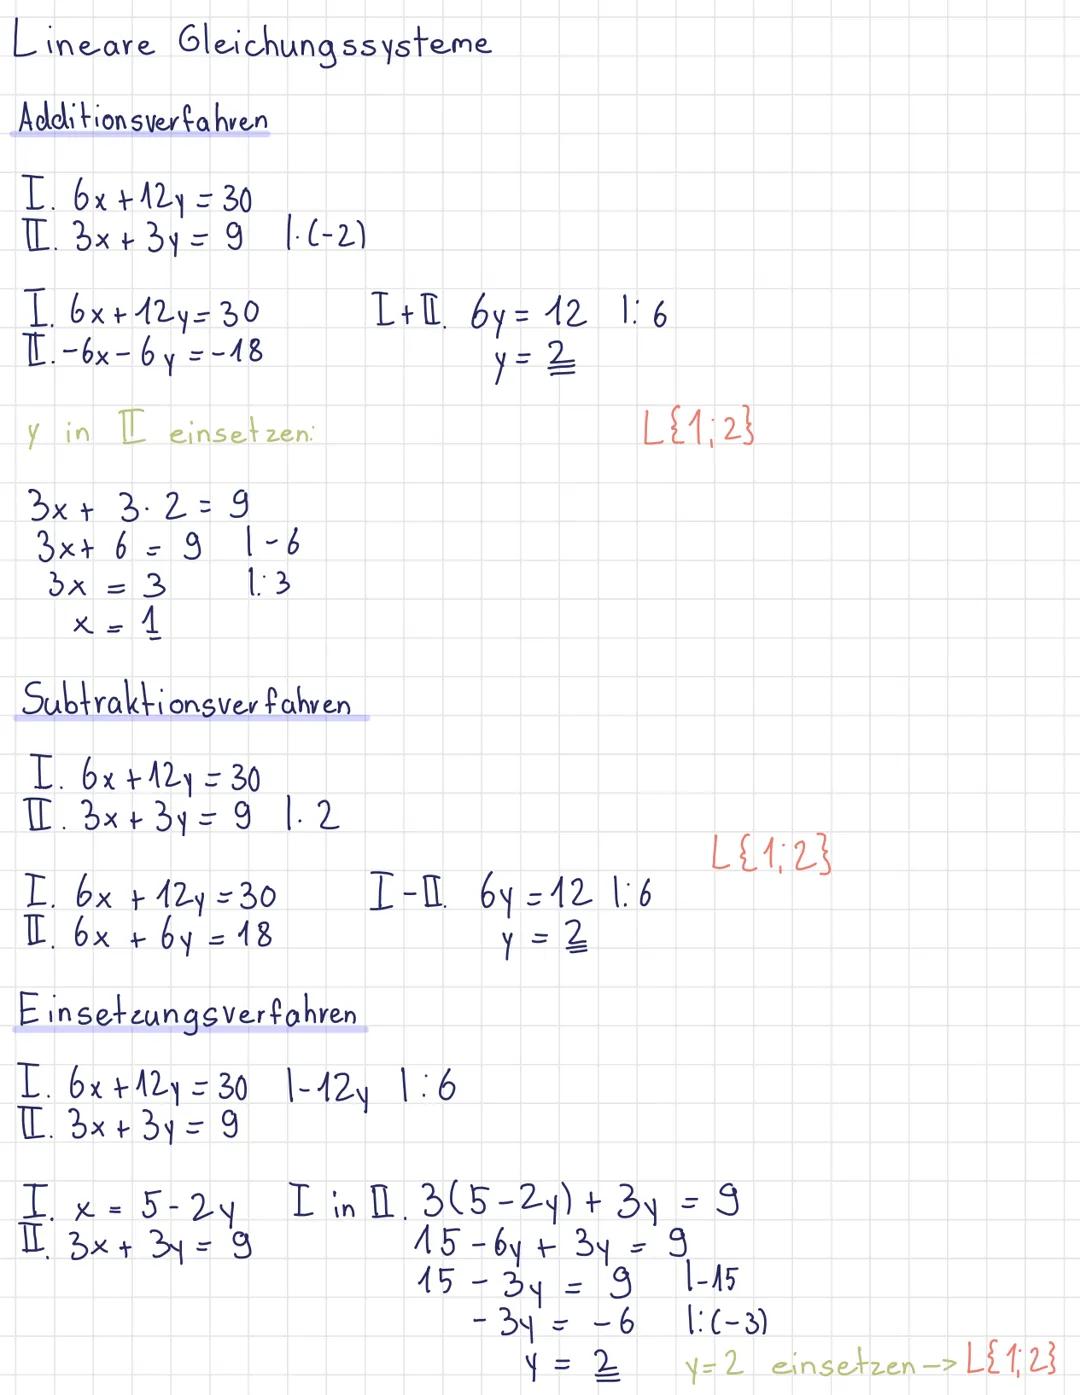 Lineare Gleichungssysteme
Additionsverfahren
I. 6x + 12y = 30
II. 3x + 3y = 9 |· (-2)
I. 6x + 12y = 30 I + II. 6y = 12 |: 6
II. -6x - 6y = -18 y = 2
y in II einsetzen: L{1;2}
3x + 3 · 2 = 9
3x + 6 = 9 | - 6
3x = 3 |: 3
x = 1
Subtraktionsverfahren
I. 6x + 12y = 30
II. 3x + 3y = 9 |· 2
L{1;2}
I. 6x + 12y = 30 I - II. 6y = 12 |: 6
II. 6x + 6y = 18 y = 2
Einsetzungsverfahren
I. 6x + 12y = 30 |-12y |: 6
II. 3x + 3y = 9
I. x = 5 - 2y I in II. 3(5 - 2y) + 3y = 9
II. 3x + 3y = 9 15 - 6y + 3y = 9
15 - 3y = 9 |-15
- 3y = -6 |: (-3)
y = 2 y = 2 einsetzen -> L{1;2}